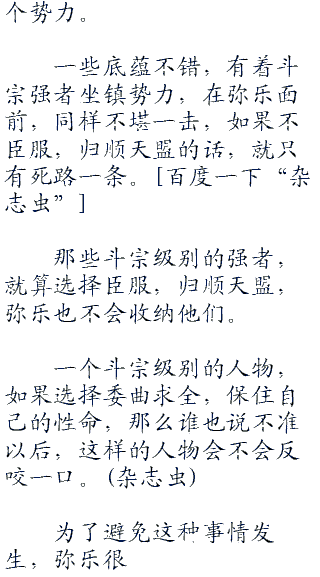 个势力。
一些底蕴不错，有着斗
宗强者坐镇势力，在弥乐面
前，同样不堪一击，如果不
臣服，归顺天盟的话，就只
有死路一条。[百度一下“杂
志虫”]
那些斗宗级别的强者，
就算选择臣服，归顺天盟，
弥乐也不会收纳他们。
一个斗宗级别的人物，
如果选择委曲求全，保住自
己的性命，那么谁也说不准
以后，这样的人物会不会反
咬一口。(杂志虫)
为了避免这种事情发
生，弥乐很